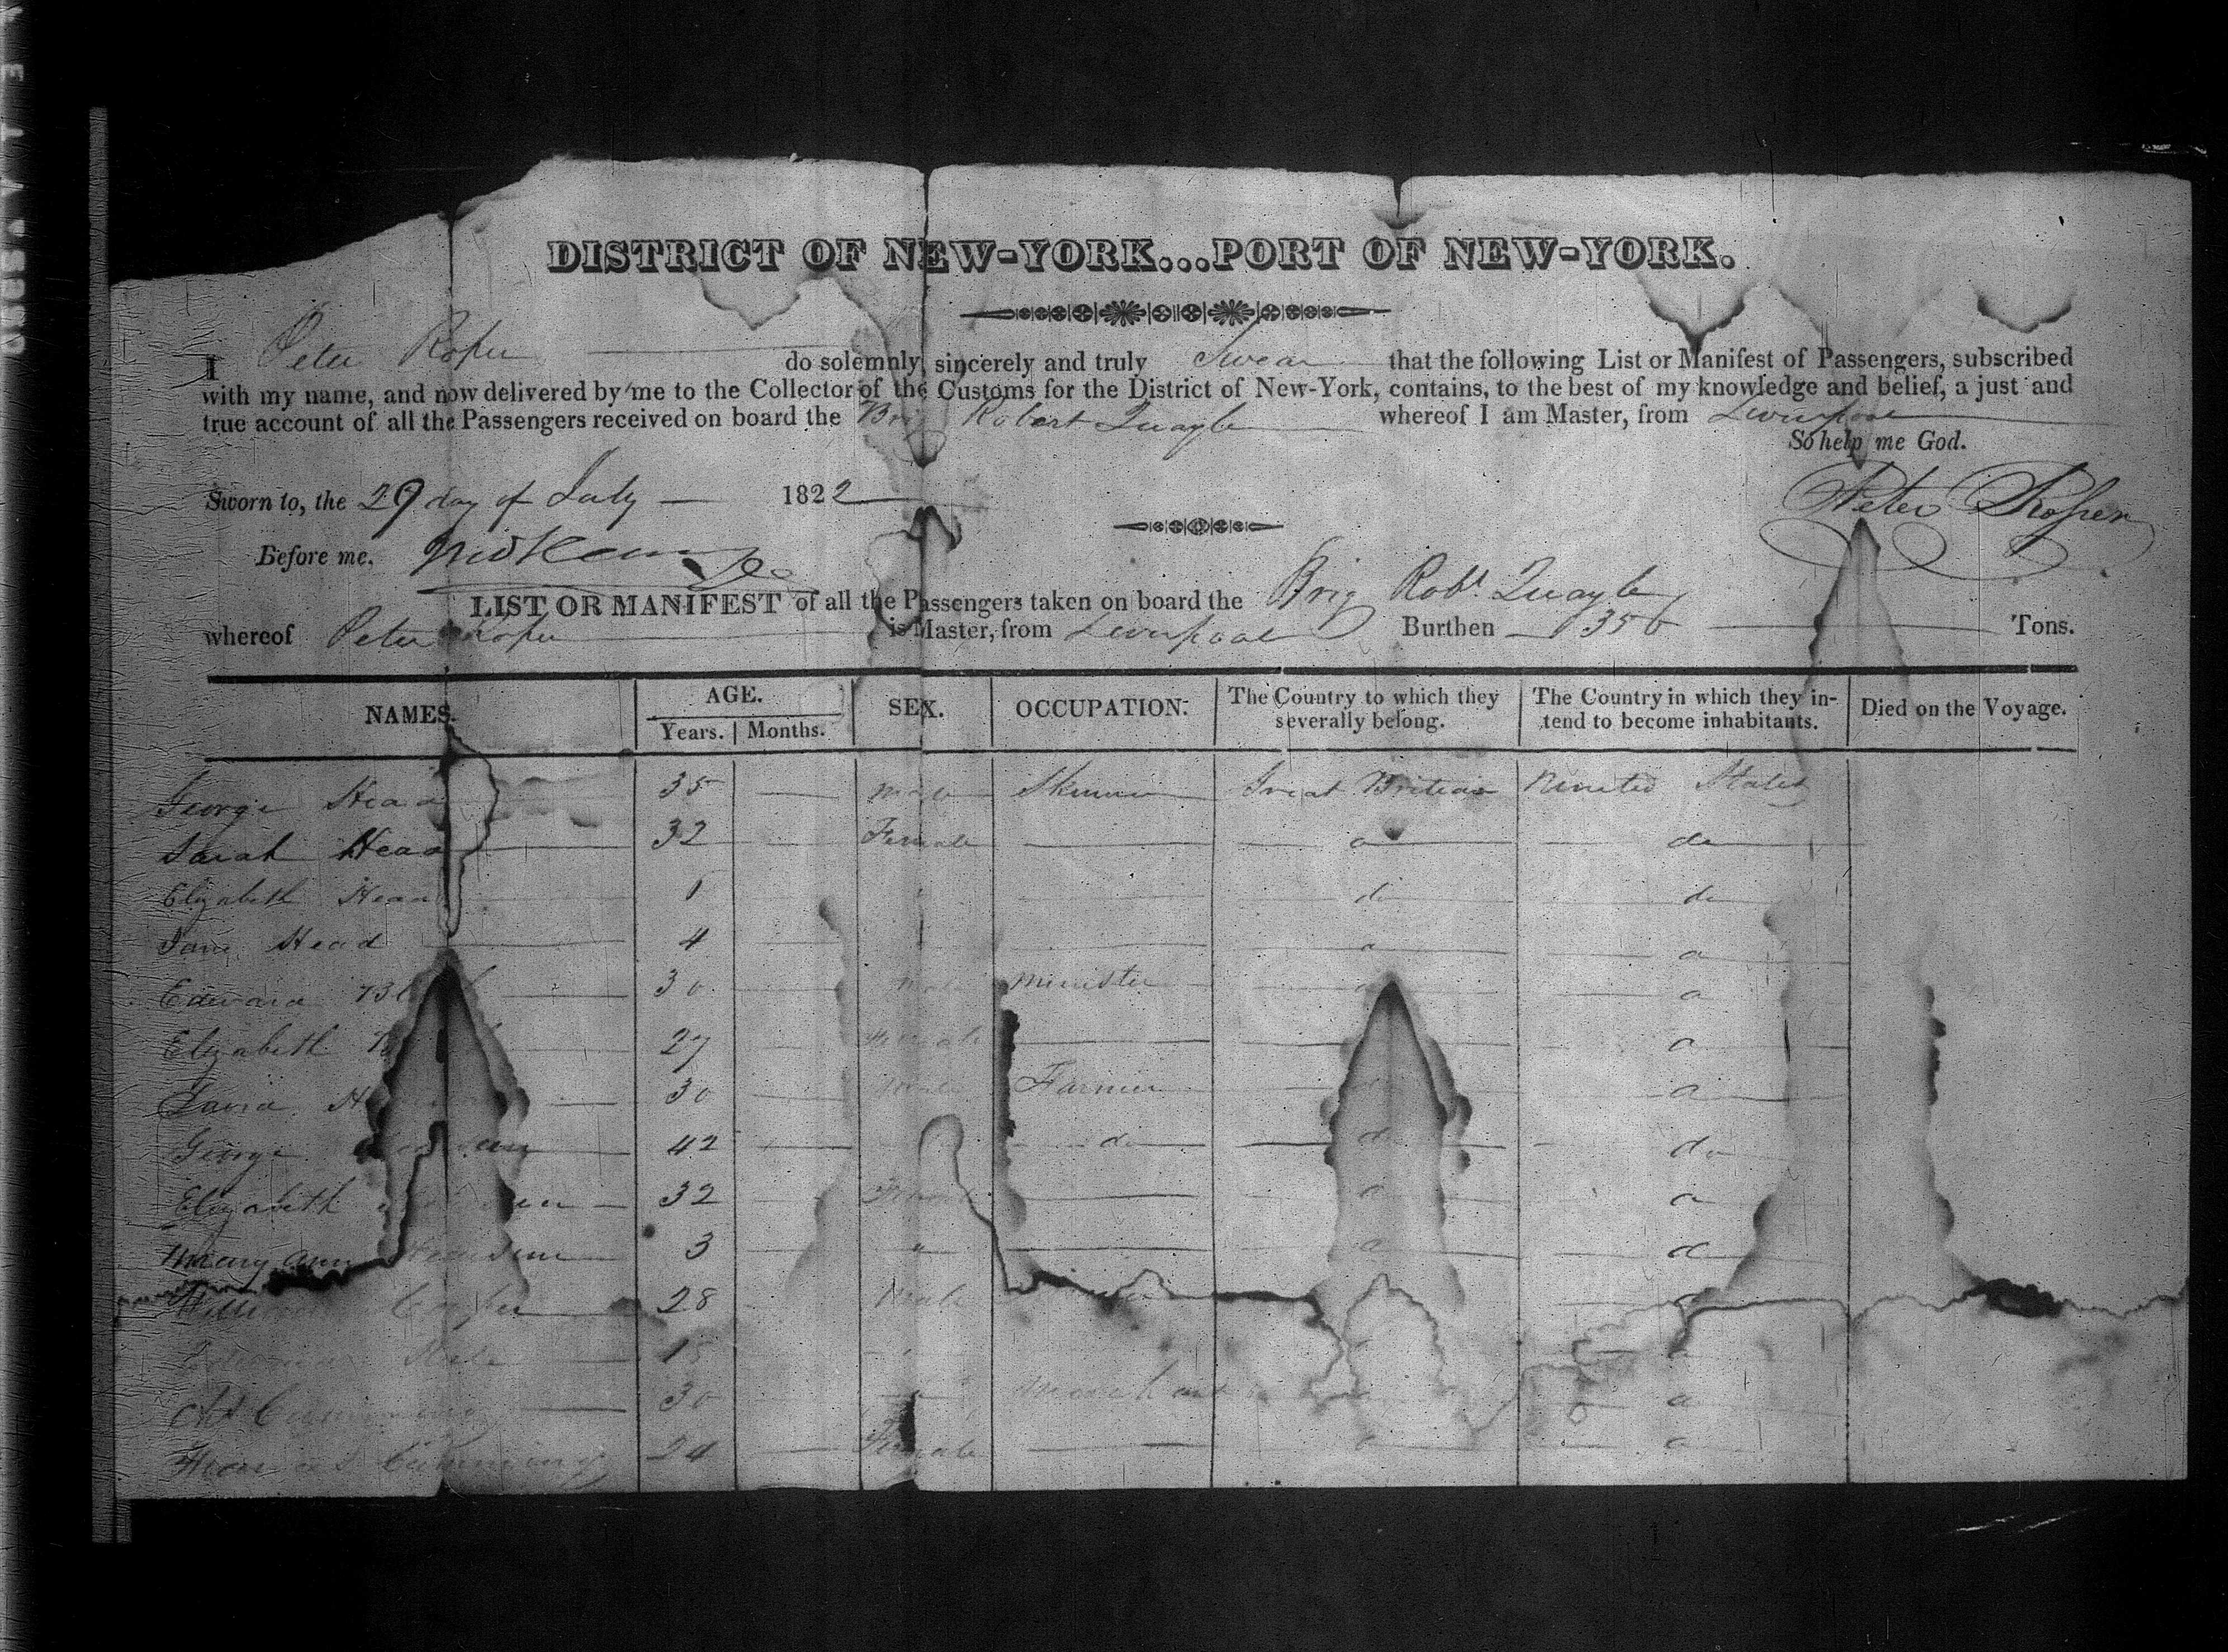 DISTRICT OF NEW-YORK...PORT OF NEW-YORK.
I Peter Roper do solemnly, sincerely and truly Swear that the following List or Manifest of Passengers, subscribed
with my name, and now delivered by me to the Collector of the Customs for the District of New-York, contains, to the best of my knowledge and belief, a just and
true account of all the Passengers received on board the Brig Robert Quayle whereof I am Master, from Liverpool
So help me God.
Sworn to, the 29 day of July 1822
Peter Roper
Before me.
LIST OR MANIFEST of all the Passengers taken on board the Brig Robt Quayle
whereof Peter Roper is Master, from Liverpool Burthen 356 Tons.
NAMES. AGE. SEX. OCCUPATION. The Country to which they severally belong. The Country in which they intend to become inhabitants. Died on the Voyage.
Years. Months.
George Head 35 male Skinner Great Britain United States
Sarah Head 32 Female do do
Elizabeth Head 1 " do do
Jane Head 4 do do
Edward 30 male minister do do
Elizabeth 27 female do
David 30 male Farmer do do
George 42 do do do
Elizabeth 32 Female do do
Mary Ann 3 " do do
William Cooper 28 Male
15
Cumming 30 " Merchant do
Cumming 24 Female do do